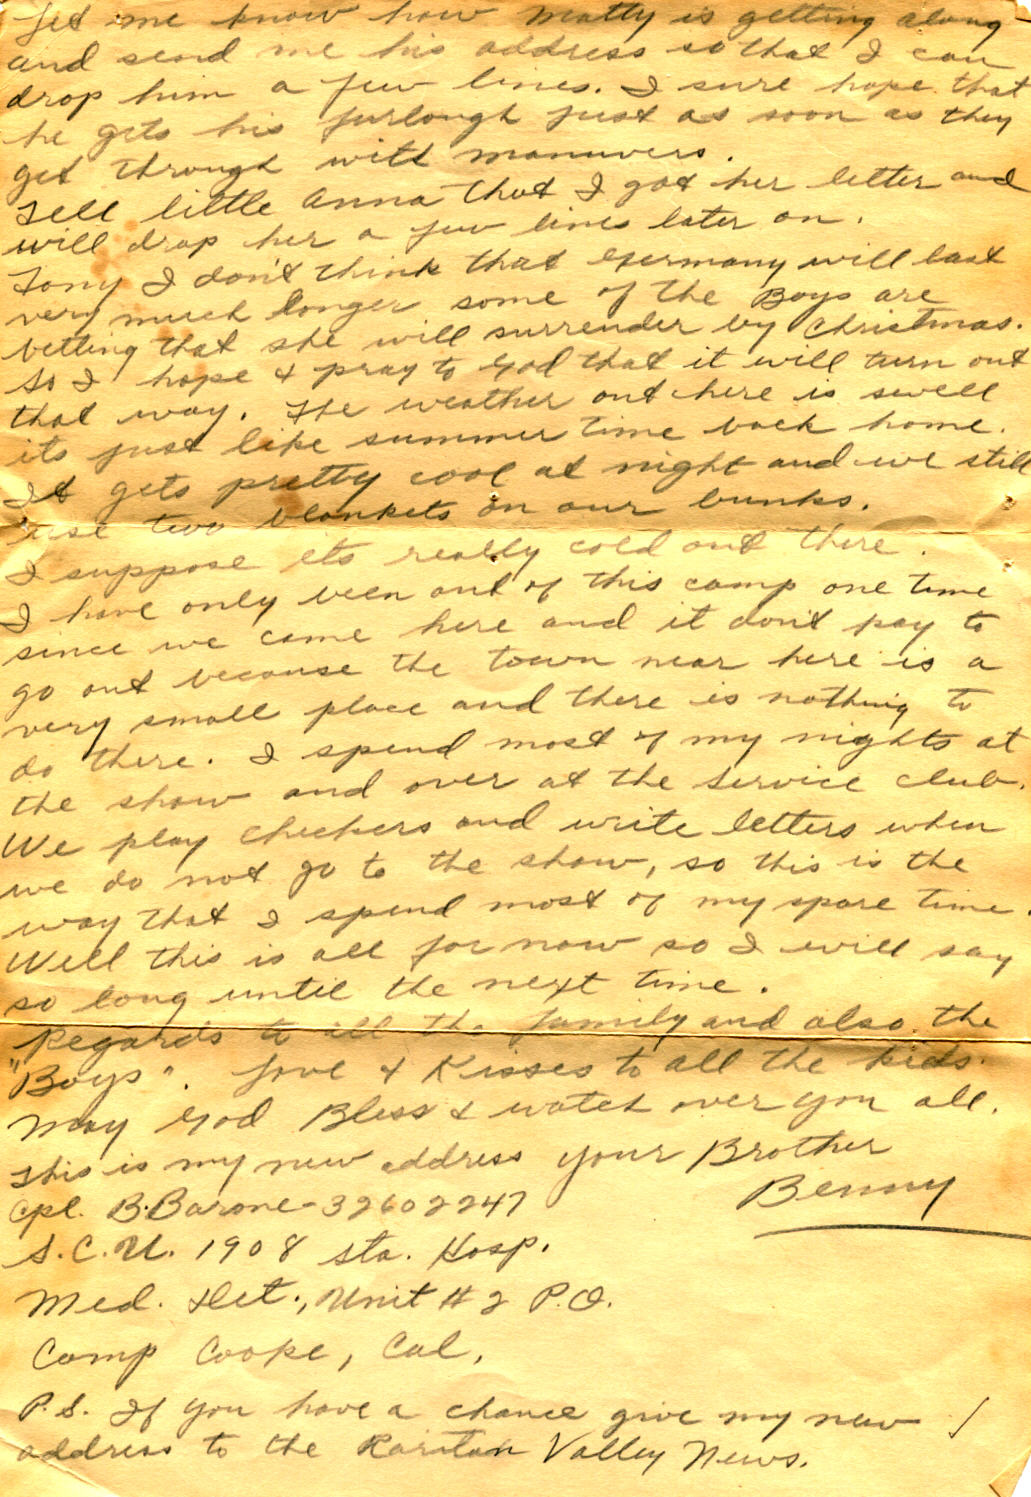 Let me know how Matty is getting along
and send me his address so that I can
drop him a few lines. I sure hope that
he gets his furlough just as soon as they
get through with manuvers.
Tell little Anna that I got her letter and
will drop her a few lines later on.
Tony I don't think that Germany will last
very much longer some of the Boys are
betting that she will surrender by Christmas.
So I hope & pray to God that it will turn out
that way. The weather out here is swell
its just like summer time back home.
It gets pretty cool at night and we still
use two blankets on our bunks.
I suppose its really cold out there.
I have only been out of this camp one time
since we came here and it don't pay to
go out because the town near here is a
very small place and there is nothing to
do there. I spend most of my nights at
the show and over at the Service Club.
We play checkers and write letters when
we do not go to the show, so this is the
way that I spend most of my spare time.
Well this is all for now so I will say
so long until the next time.
Regards to all the family and also the
"Boys". Love & Kisses to all the kids.
May God Bless & watch over you all.
This is my new address your Brother
Cpl. B. Barone - 32602247 Benny
S.C.U. 1908 Sta. Hosp.
Med. Det., Unit # 2 P.O.
Camp Cooke, Cal,
P.S. If you have a chance give my new
address to the Raritan Valley News.